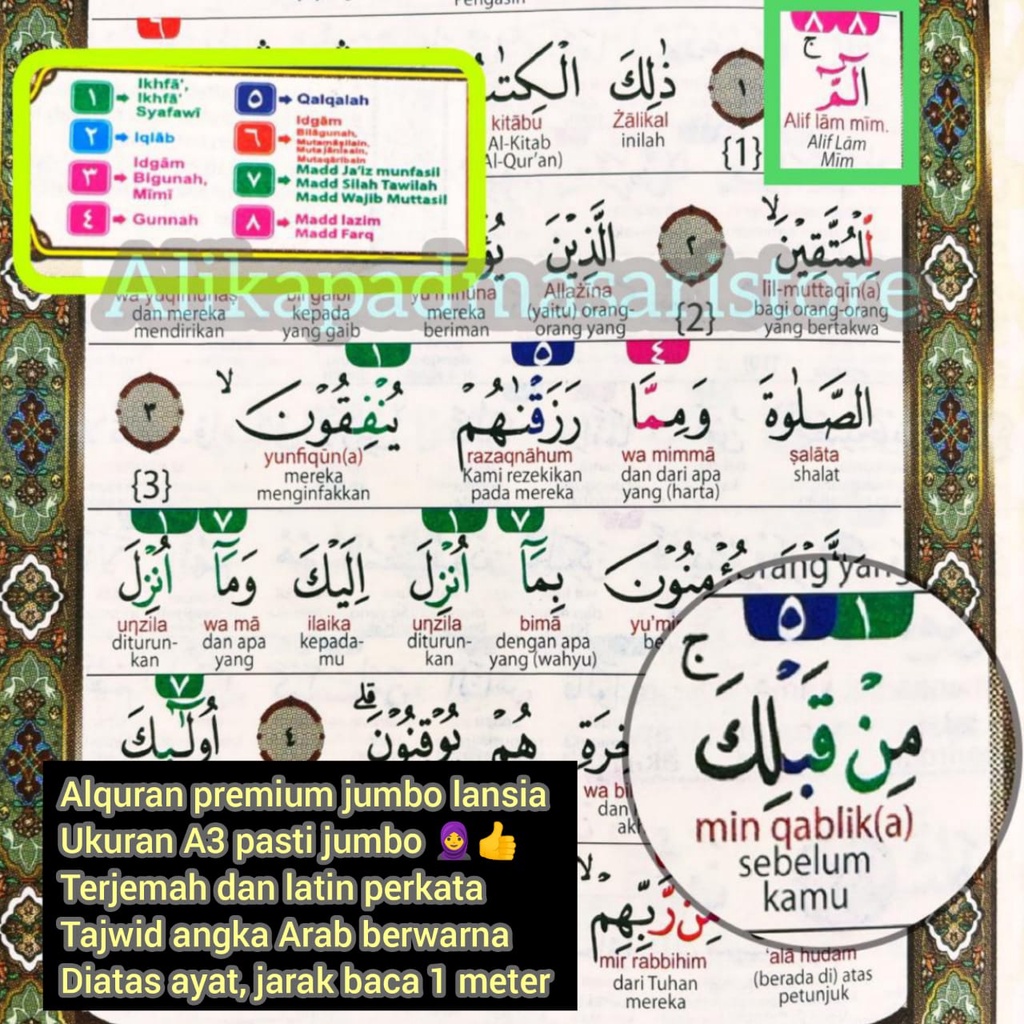 Pengasih
٦
١ Ikhfā', Ikhfā' Syafawī
٢ Iqlāb
٣ Idgām Bigunah, Mīmī
٤ Gunnah
٥ Qalqalah
٦ Idgām Bilāgunah, Mutamāṡilain, Mutajānisain, Mutaqāribain
٧ Madd Ja'iz munfasil Madd Silah Tawilah Madd Wajib Muttasil
٨ Madd lazim Madd Farq
٨ ٨
الٓمّٓ ۚ ١ ذٰلِكَ الْكِتٰبُ
Alif lām mīm. {1} Żālikal kitābu
Alif Lām inilah Al-Kitab
Mīm Al-Qur'an)
لِّلْمُتَّقِيْنَۙ ٢ الَّذِيْنَ
Alikapadmasaristore
lil-muttaqīn(a) {2} Allażīna yu'minūna bil gaibi wa yuqīmūnaṣ
bagi orang-orang (yaitu) orang- mereka kepada dan mereka
yang bertakwa orang yang beriman yang gaib mendirikan
٤ ٥ ١
الصَّلٰوةَ وَمِمَّا رَزَقْنٰهُمْ يُنْفِقُوْنَۙ ٣
ṣalāta wa mimmā razaqnāhum yunfiqūn(a) {3}
shalat dan dari apa Kami rezekikan mereka
yang (harta) pada mereka menginfakkan
٧ ١ ٧ ١
يُؤْمِنُوْنَ بِمَآ اُنْزِلَ اِلَيْكَ وَمَآ اُنْزِلَ
bimā unzila ilaika wa mā unzila
dengan apa diturun- kepada- dan apa diturun-
yang (wahyu) kan mu yang kan
orang yang
٥ ١
مِنْ قَبْلِكَۚ
min qablik(a)
sebelum
kamu
٧
هُمْ يُوْقِنُوْنَۗ ٤ اُولٰۤىِٕكَ
wa bi
dan
مِّنْ رَّبِّهِمْ
'alā hudam mir rabbihim
(berada di) atas dari Tuhan
petunjuk mereka
Alquran premium jumbo lansia
Ukuran A3 pasti jumbo 🧕👍
Terjemah dan latin perkata
Tajwid angka Arab berwarna
Diatas ayat, jarak baca 1 meter